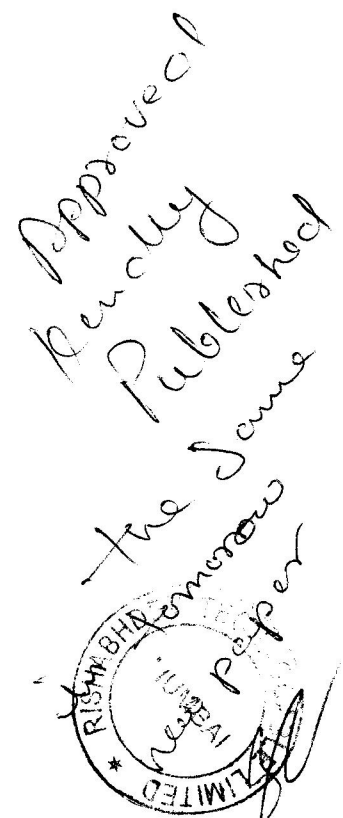 Approved
Kindly
Published
the same
in tomorrow
news paper
RISHABHD
MUMBAI
LIMITED *